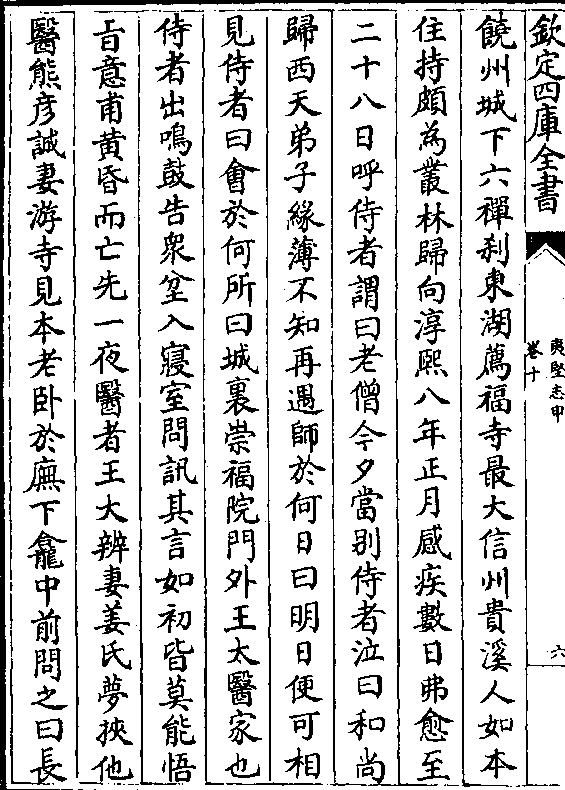 欽定四庫全書
夷堅志甲
卷十
六
饒州城下六禪刹東湖薦福寺最大信州貴溪人如本
住持頗為叢林歸向淳熙八年正月感疾數日弗愈至
二十八日呼侍者謂曰老僧今夕當别侍者泣曰和尚
歸西天弟子緣薄不知再遇師於何日曰明日便可相
見侍者曰會於何所曰城裏崇福院門外王太醫家也
侍者出鳴鼓告衆坌入寢室問訊其言如初皆莫能悟
㫖意甫黄昏而亡先一夜醫者王大辨妻姜氏夢挾他
醫熊彦誠妻游寺見本老卧於廡下龕中前問之曰長